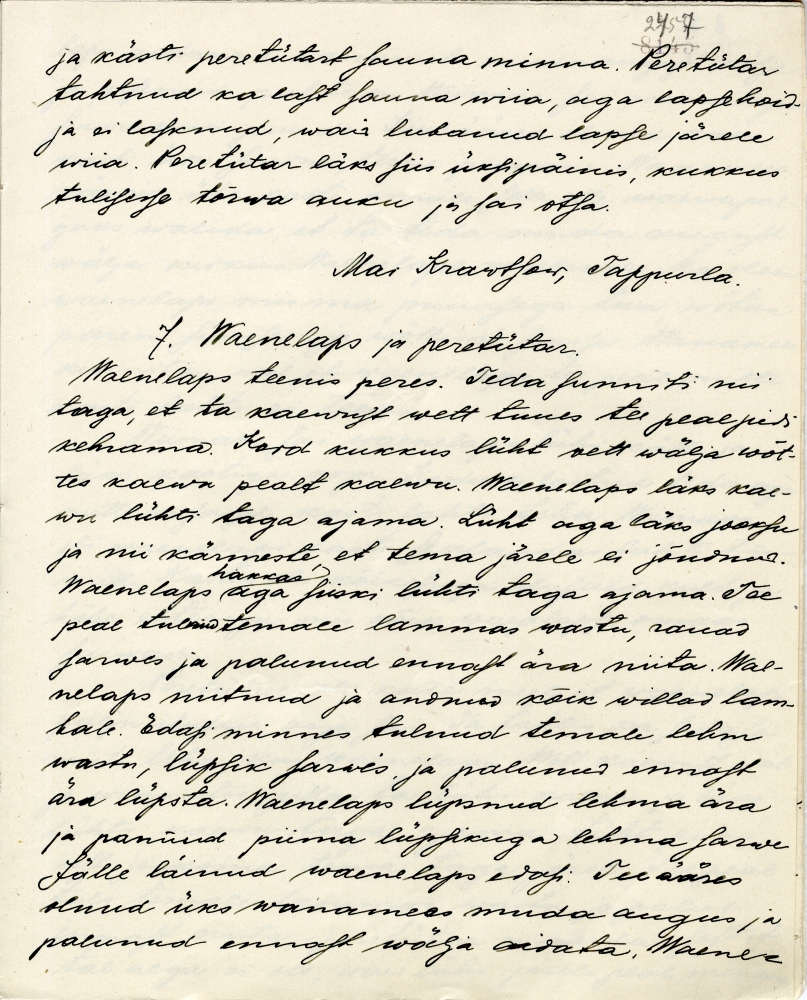 2457
ja kästi peretütart sauna minna. Peretütar
tahtnud ka last sauna wiia, aga lapsehoid-
ja ei lasknud, wais lubanud lapse järele
wiia. Peretütar läks siis üksipäinis, kukkus
tulisesse tõrwa auku ja sai otsa.
Mai Krawtsow, Tappurla.
7. Waenelaps ja peretütar.
Waenelaps teenis peres. Teda sunniti nii
taga, et ta kaewust wett tuues tee peal pidi
kehrama. Kord kukkus lüht vett wälja wõt-
tes kaewu pealt kaewu. Waenelaps läks kae-
wu lühti taga ajama. Lüht aga läks jooksu
ja nii kärmeste, et tema järele ei jõudnud.
Waenelaps hakkas aga siiski lühti taga ajama. Tee
peal tulnud temale lammas wastu, rauad
sarwes ja palunud ennast ära niita. Wae-
nelaps niitnud ja andnud kõik willad lam-
bale. Edasi minnes tulnud temale lehm
wastu, lüpsik sarwes, ja palunud ennast
ära lüpsta. Waenelaps lüpsnud lehma ära
ja pannud piima lüpsikuga lehma sarwe
Jälle läinud waenelaps edasi. Tee ääres
olnud üks wanamees muda augus ja
palunud ennast wälja aidata. Waene-